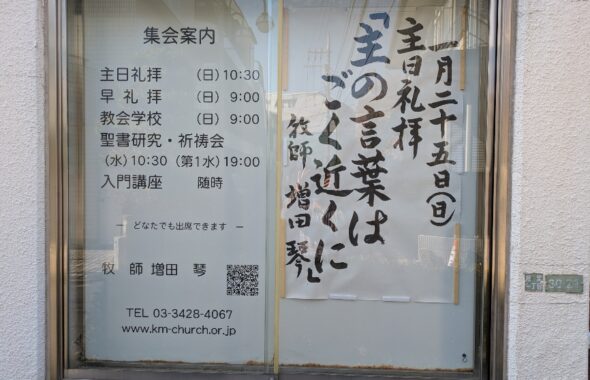 集会案内
主日礼拝 （日）10:30
早礼拝 （日） 9:00
教会学校 （日） 9:00
聖書研究・祈祷会
（水）10:30（第1水）19:00
入門講座 随時
― どなたでも出席できます ―
牧 師 増田 琴
TEL 03-3428-4067
www.km-church.or.jp
一月二十五日（日）
主日礼拝
「主の言葉は
ごく近くに」
牧師 増田琴